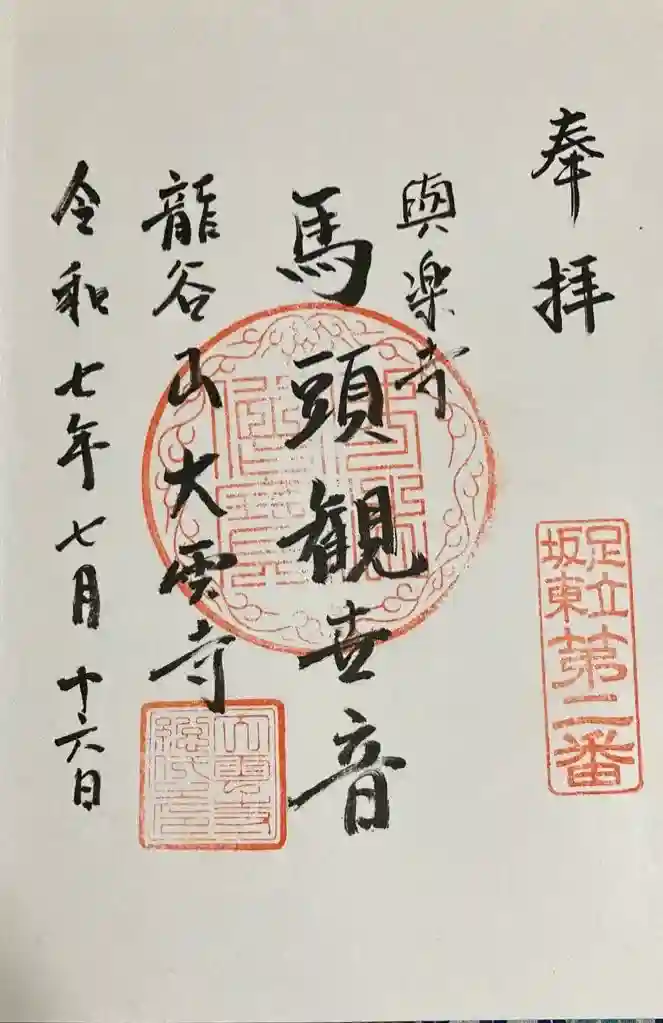 奉拝
足立
坂東
第二番
與楽寺
馬頭観世音
龍谷山大雲寺
令和七年七月十六日